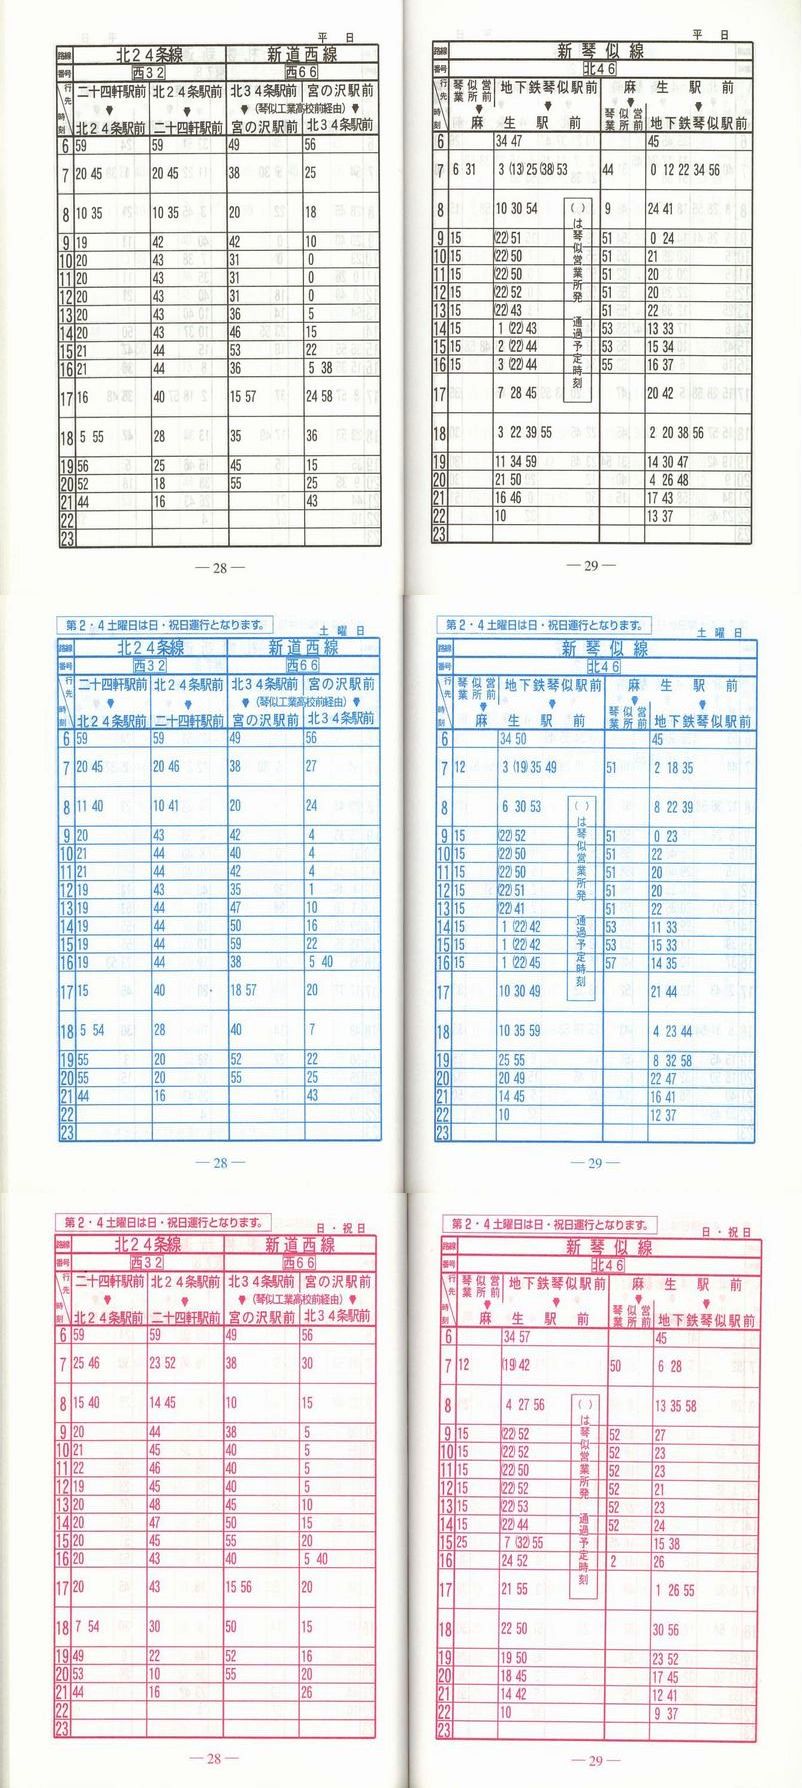 平 日
路線 北24条線 新道西線
番号 西32 西66
行先 二十四軒駅前 北24条駅前 北34条駅前 宮の沢駅前
(琴似工業高校前経由)
時刻 北24条駅前 二十四軒駅前 宮の沢駅前 北34条駅前
6 59 59 49 56
7 20 45 20 45 38 25
8 10 35 10 35 20 18
9 19 42 42 10
10 20 43 31 0
11 20 43 31 0
12 20 43 31 0
13 20 43 36 5
14 20 43 46 15
15 21 44 53 22
16 21 44 36 5 38
17 16 40 15 57 24 58
18 5 55 28 35 36
19 56 25 45 15
20 52 18 55 25
21 44 16 43
22
23
― 28 ―
平 日
路線 新琴似線
番号 北46
行先 琴似営業所前 地下鉄琴似駅前 麻生駅前
時刻 麻生駅前 琴似営業所前 地下鉄琴似駅前
6 34 47 45
7 6 31 3 (13) 25 (38) 53 44 0 12 22 34 56
8 10 30 54 9 24 41
9 15 (22) 51 51 0 24
10 15 (22) 50 51 21
11 15 (22) 50 51 20
12 15 (22) 52 51 20
13 15 (22) 43 51 22
14 15 1 (22) 43 53 13 33
15 15 2 (22) 44 53 15 34
16 15 3 (22) 44 55 16 37
17 7 28 45 20 42
18 3 22 39 55 2 20 38 56
19 11 34 59 14 30 47
20 21 50 4 26 48
21 16 46 17 43
22 10 13 37
23
( )は琴似営業所発 通過予定時刻
― 29 ―
第2・4土曜日は日・祝日運行となります。
土 曜 日
路線 北24条線 新道西線
番号 西32 西66
行先 二十四軒駅前 北24条駅前 北34条駅前 宮の沢駅前
(琴似工業高校前経由)
時刻 北24条駅前 二十四軒駅前 宮の沢駅前 北34条駅前
6 59 59 49 56
7 20 45 20 46 38 27
8 11 40 10 41 20 24
9 20 43 42 4
10 21 44 40 4
11 21 44 42 4
12 19 43 35 1
13 19 44 47 10
14 19 44 50 16
15 19 44 59 22
16 19 44 38 5 40
17 15 40 18 57 20
18 5 54 28 40 7
19 55 20 52 22
20 55 20 55 25
21 44 16 43
22
23
― 28 ―
第2・4土曜日は日・祝日運行となります。
土 曜 日
路線 新琴似線
番号 北46
行先 琴似営業所前 地下鉄琴似駅前 麻生駅前
時刻 麻生駅前 琴似営業所前 地下鉄琴似駅前
6 34 50 45
7 12 3 (19) 35 49 51 2 18 35
8 6 30 53 8 22 39
9 15 (22) 52 51 0 23
10 15 (22) 50 51 22
11 15 (22) 50 51 20
12 15 (22) 51 51 20
13 15 (22) 41 51 22
14 15 1 (22) 42 53 11 33
15 15 1 (22) 42 53 15 33
16 15 1 (22) 45 57 14 35
17 10 30 49 21 44
18 10 35 59 4 23 44
19 25 55 8 32 58
20 20 49 22 47
21 14 45 16 41
22 10 12 37
23
( )は琴似営業所発 通過予定時刻
― 29 ―
第2・4土曜日は日・祝日運行となります。
日・祝日
路線 北24条線 新道西線
番号 西32 西66
行先 二十四軒駅前 北24条駅前 北34条駅前 宮の沢駅前
(琴似工業高校前経由)
時刻 北24条駅前 二十四軒駅前 宮の沢駅前 北34条駅前
6 59 59 49 56
7 25 46 23 52 38 30
8 15 40 14 45 10 15
9 20 44 38 5
10 21 45 40 5
11 22 46 40 5
12 19 45 40 5
13 20 48 45 10
14 20 47 50 15
15 20 45 55 20
16 20 43 40 5 40
17 20 43 15 56 20
18 7 54 30 50 15
19 49 22 52 16
20 53 10 55 20
21 44 16 26
22
23
― 28 ―
第2・4土曜日は日・祝日運行となります。
日・祝日
路線 新琴似線
番号 北46
行先 琴似営業所前 地下鉄琴似駅前 麻生駅前
時刻 麻生駅前 琴似営業所前 地下鉄琴似駅前
6 34 57 45
7 12 (19) 42 50 6 28
8 4 27 56 13 35 58
9 15 (22) 52 52 27
10 15 (22) 52 52 23
11 15 (22) 50 52 23
12 15 (22) 52 52 21
13 15 (22) 53 52 23
14 15 (22) 44 52 24
15 25 7 (32) 55 15 38
16 24 52 2 26
17 21 55 1 26 55
18 22 50 30 56
19 19 50 23 52
20 18 45 17 45
21 14 42 12 41
22 10 9 37
23
( )は琴似営業所発 通過予定時刻
― 29 ―